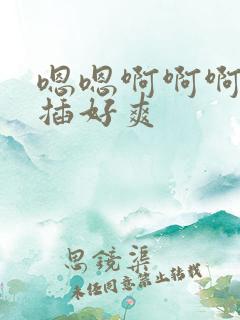 嗯嗯啊啊啊
插好爽
思镜渠
未经同意禁止转载